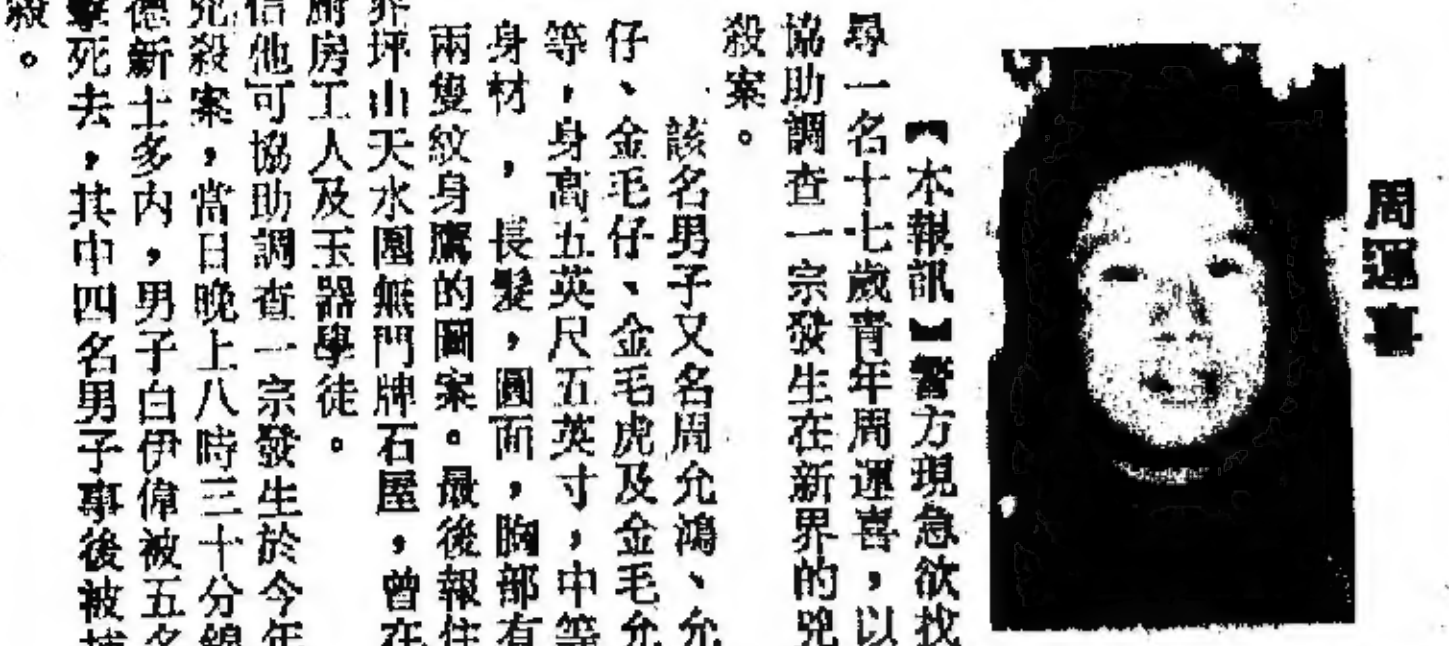 周運喜
【本報訊】警方現急欲找
尋一名十七歲青年周運喜，以
協助調查一宗發生在新界的兇
殺案。
該名男子又名周允鴻、允
仔、金毛仔、金毛虎及金毛允
等，身高五英尺五英寸，中等
身材，長髮，圓面，胸部有
兩隻紋身鷹的圖案。最後報住
界坪山天水圍無門牌石屋，曾在
廚房工人及玉器學徒。
信他可協助調查一宗發生於今年
兇殺案，當日晚上八時三十分錦
德新士多內，男子白伊偉被五名
擊死去，其中四名男子事後被捕
殺。